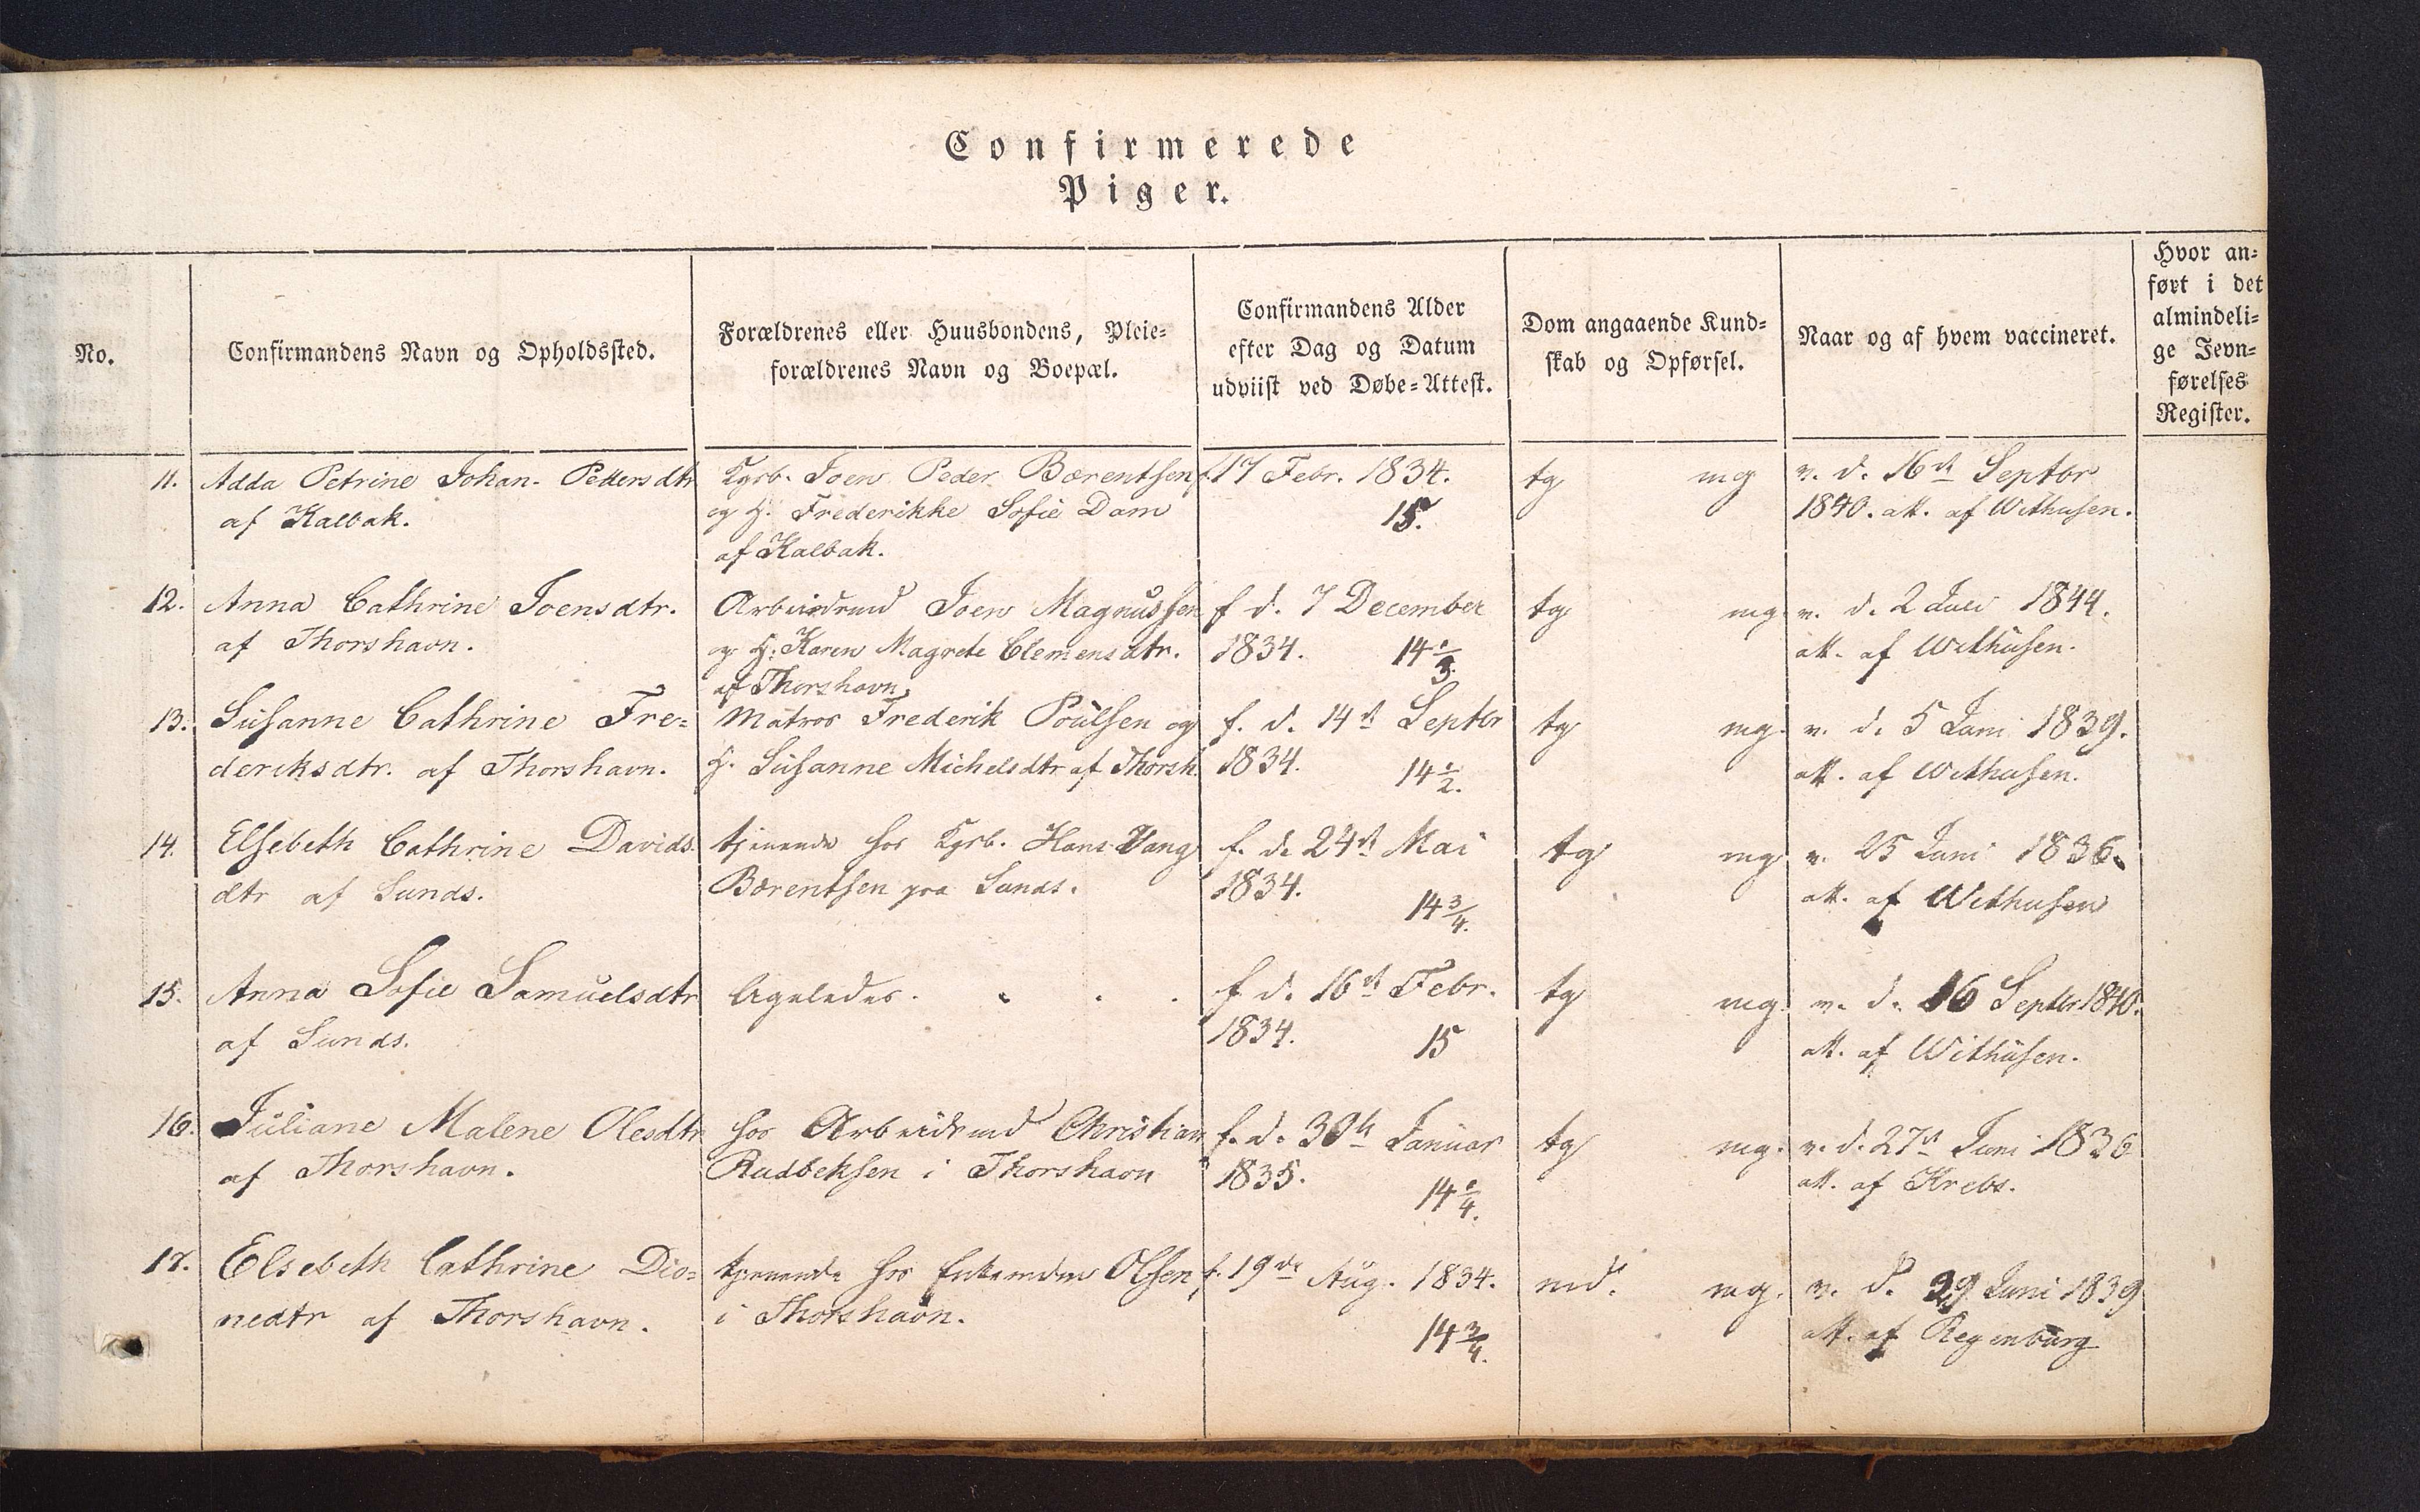 Confirmerede
Piger.
No.
Confirmandens Navn og Opholdssted.
Forældrenes eller Huusbondens, Pleie-
forældrenes Navn og Boepæl.
Confirmandens Alder
efter Dag og Datum
udviist ved Døbe-Attest.
Dom angaaende Kund-
skab og Opførsel.
Naar og af hvem vaccineret.
Hvor an-
ført i det
almindeli-
ge Jevn-
førelses
Register.
11. Adda Petrine Johan- Pettersdtr
af Kalbak.
Kgsb. Joen Peder Bærentsen
og H. Frederikke Sofie Dam
af Kalbak.
f. 17 Febr. 1834.
15.
tg mg
v. d. 16de Septbr
1840. att. af Withusen.
12. Anna Cathrine Joensdtr.
af Thorshavn.
Arbeidsmd Joen Magnussen
og H. Karen Magrete Clemensdtr.
af Thorshavn.
f d. 7 December
1834. 14 1/3.
tg mg.
v. d. 2 Juli 1844.
att. af Withusen.
13. Susanne Cathrine Fre-
deriksdtr. af Thorshavn.
Matros Frederik Poulsen og
H. Susanne Michelsdtr af Thorsh.
f. d. 14de Septbr
1834. 14 1/2.
tg mg.
v. d. 5 Juni 1839.
att. af Withusen.
14. Elsebeth Cathrine Davids-
dtr af Sunds.
tjenende hos Kgsb. Hans Vang
Bærentsen paa Sunds.
f. d. 24de Mai
1834.
14 3/4.
tg mg
v. 25 Juni 1836.
att. af Withusen
15. Anna Sofie Samuelsdtr
af Sunds.
ligeledes.
f d. 16de Febr.
1834. 15
tg mg.
v. d. 16 Septbr 1840.
att. af Withusen.
16. Juliane Malene Olesdtr
af Thorshavn.
hos Arbeidsmd Christian
Rudbeksen i Thorshavn
f. d. 30te Januar
1835.
14 1/4.
tg mg.
v. d. 27de Juni 1836
att. af Krebs.
17. Elsebeth Cathrine Dio-
nedtr af Thorshavn.
tjenende hos Enkemadm Olsen
i Thorshavn.
f. 19de Aug. 1834.
14 3/4.
md. mg.
v. d. 29 Juni 1839
att. af Regenburg